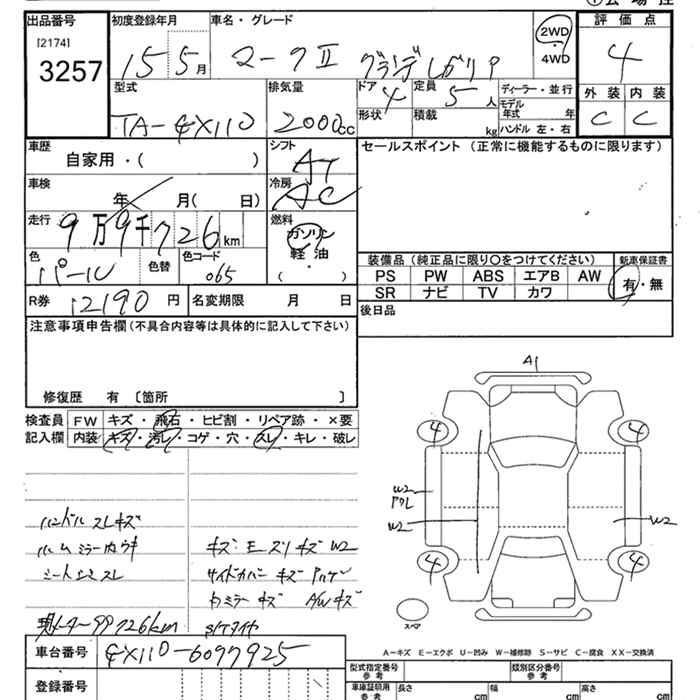 出品番号
[2174]
3257
初度登録年月
15 5月
車名・グレード
マークⅡ グランデ レガリア
2WD
4WD
評価点
4
外装 内装
C C
型式
TA-GX110
排気量
2000cc
ドア
4
形状
定員
5人
積載
kg
ディーラー・並行
モデル年式 年
ハンドル 左・右
車歴
自家用・( )
シフト
AT
セールスポイント (正常に機能するものに限ります)
車検
年 月( 日)
冷房
AC
走行
9万9千726km
燃料
ガソリン
軽油
( )
色
パール
色替
色コード
065
装備品 (純正品に限り〇をつけてください)
新車保証書
PS PW ABS エアB AW
SR ナビ TV カワ
有・無
R券
12190円
名変期限 月 日
後日品
注意事項申告欄(不具合内容等は具体的に記入して下さい)
修復歴 有 [箇所 ]
検査員記入欄
FW キズ・飛石・ヒビ割・リペア跡・×要
内装 キズ・汚レ・コゲ・穴・スレ・キレ・破レ
ハンドル スレキズ
ルームミラー内ウキ
シート スレ
現メーター99726km
キズ:モ スリキズ W2
サイドカバー キズ
ミラーキズ AWキズ
A1
4
4
W2
W2
W2
4
4
スペア
A-キズ E-エクボ U-凹み W-補修跡 S-サビ C-腐食 XX-交換済
車台番号
GX110-6097925
登録番号
型式指定番号
参考
類別区分番号
参考
車庫証明用
参考
長さ cm
幅 cm
高さ cm